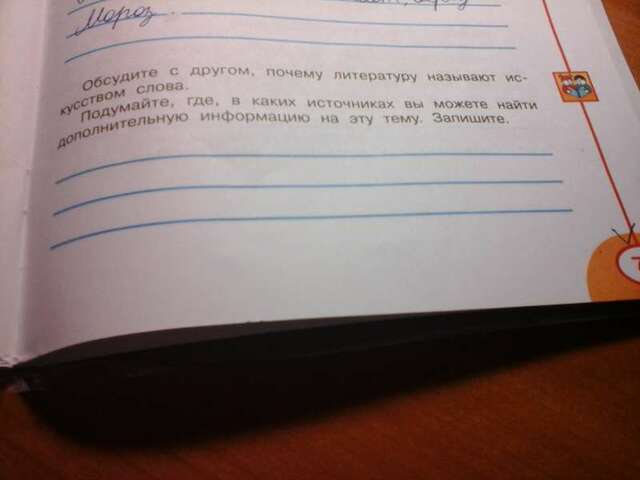 Мороз.
Обсудите с другом, почему литературу называют ис-
кусством слова.
Подумайте, где, в каких источниках вы можете найти
дополнительную информацию на эту тему. Запишите.
7